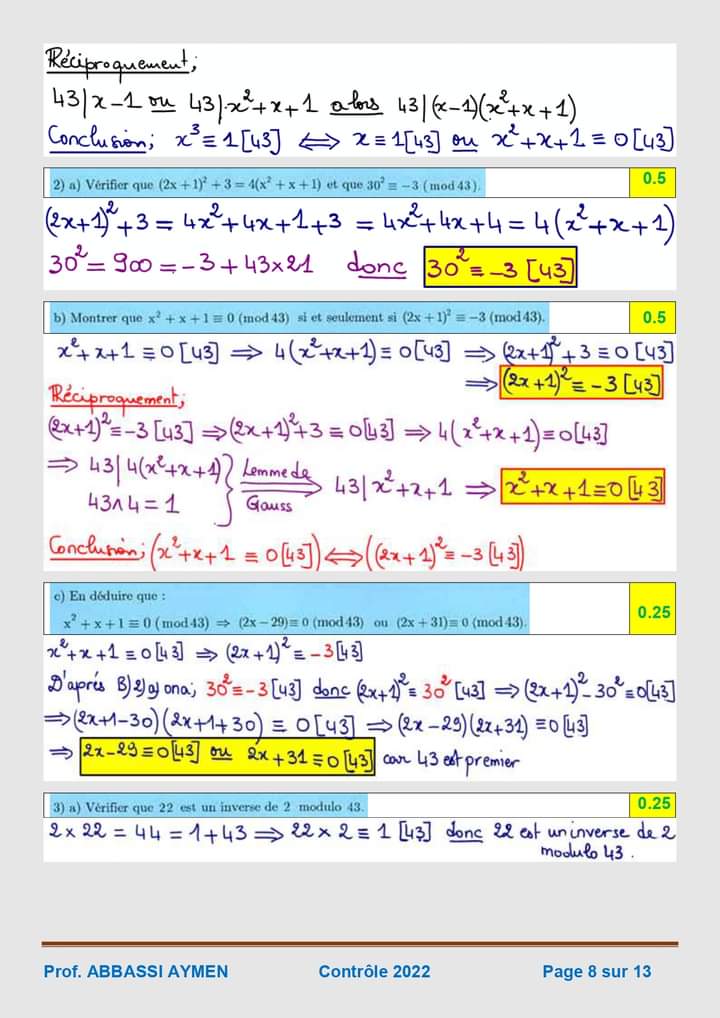 Réciproquement;
43|x-1 ou 43|x²+x+1 alors 43|(x-1)(x²+x+1)
Conclusion; x³≡1[43] ⟺ x≡1[43] ou x²+x+1≡0[43]
2) a) Vérifier que (2x + 1)² + 3 = 4(x² + x + 1) et que 30² ≡ −3 (mod 43).
0.5
(2x+1)²+3 = 4x²+4x+1+3 = 4x²+4x+4 = 4(x²+x+1)
30² = 900 = -3 + 43×21 donc 30² ≡ -3 [43]
b) Montrer que x² + x + 1 ≡ 0 (mod 43) si et seulement si (2x + 1)² ≡ −3 (mod 43).
0.5
x²+x+1 ≡ 0[43] ⟹ 4(x²+x+1) ≡ 0[43] ⟹ (2x+1)²+3 ≡ 0[43]
⟹ (2x+1)² ≡ -3 [43]
Réciproquement;
(2x+1)² ≡ -3 [43] ⟹ (2x+1)²+3 ≡ 0[43] ⟹ 4(x²+x+1) ≡ 0[43]
⟹ 43|4(x²+x+1)
43∧4 = 1
} Lemme de Gauss ⟹ 43|x²+x+1 ⟹ x²+x+1 ≡ 0[43]
Conclusion; (x²+x+1 ≡ 0[43]) ⟺ ((2x+1)² ≡ -3 [43])
c) En déduire que :
0.25
x² + x + 1 ≡ 0 (mod 43) ⇒ (2x − 29) ≡ 0 (mod 43) ou (2x + 31) ≡ 0 (mod 43).
x²+x+1 ≡ 0[43] ⟹ (2x+1)² ≡ -3[43]
D'aprés B)2)a) on a; 30² ≡ -3 [43] donc (2x+1)² ≡ 30² [43] ⟹ (2x+1)² - 30² ≡ 0[43]
⟹ (2x+1-30)(2x+1+30) ≡ 0[43] ⟹ (2x-29)(2x+31) ≡ 0[43]
⟹ 2x-29 ≡ 0[43] ou 2x+31 ≡ 0[43] car 43 est premier
3) a) Vérifier que 22 est un inverse de 2 modulo 43.
0.25
2×22 = 44 = 1+43 ⟹ 22×2 ≡ 1 [43] donc 22 est un inverse de 2
modulo 43.
Prof. ABBASSI AYMEN Contrôle 2022 Page 8 sur 13